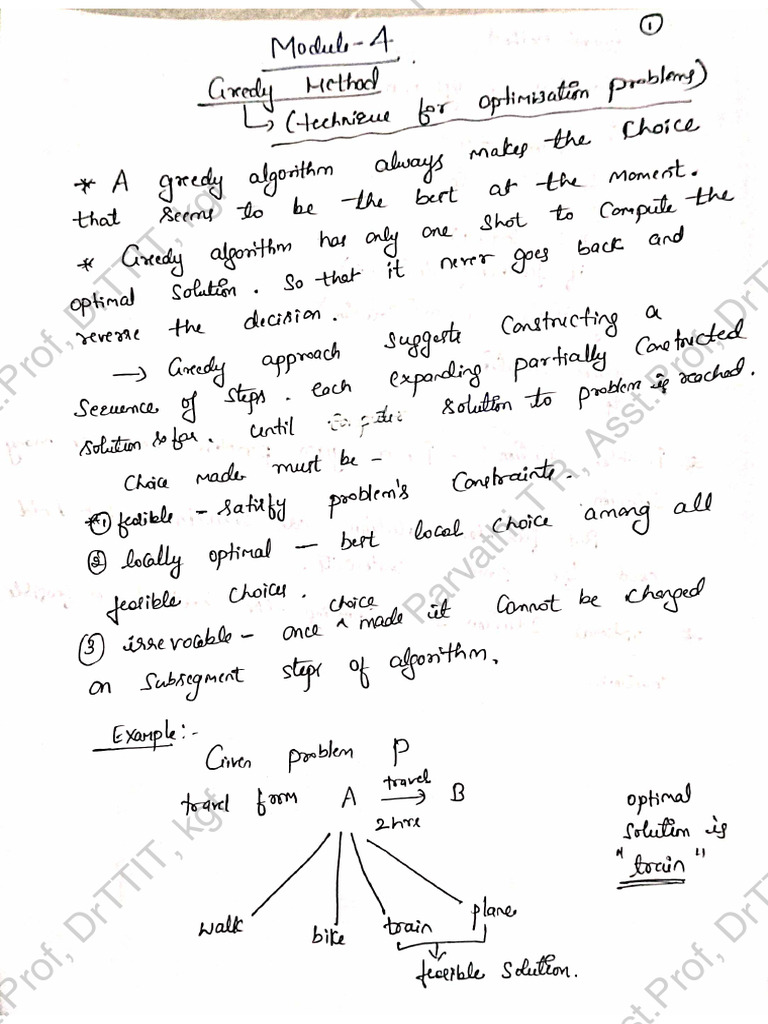 ①
Module-4
Greedy Method
↳ (technique for optimisation problems)
* A greedy algorithm always makes the choice
that seems to be the best at the moment.
* Greedy algorithm has only one shot to compute the
optimal solution. So that it never goes back and
reverse the decision.
→ Greedy approach suggests constructing a
sequence of steps. each expanding partially constructed
solution so far. until solution to problem is reached.
Choice made must be -
*① feasible - satisfy problem's constraints.
② locally optimal — best local choice among all
feasible choices.
③ irrevocable - once choice made it cannot be changed
on subsegment steps of algorithm.
Example:-
Given problem P
travel from A travel → B
2 hrs
optimal
solution is
"train"
walk bike train plane
feasible solution.
Parvathi T R, Asst.Prof, DrTTIT, kgf